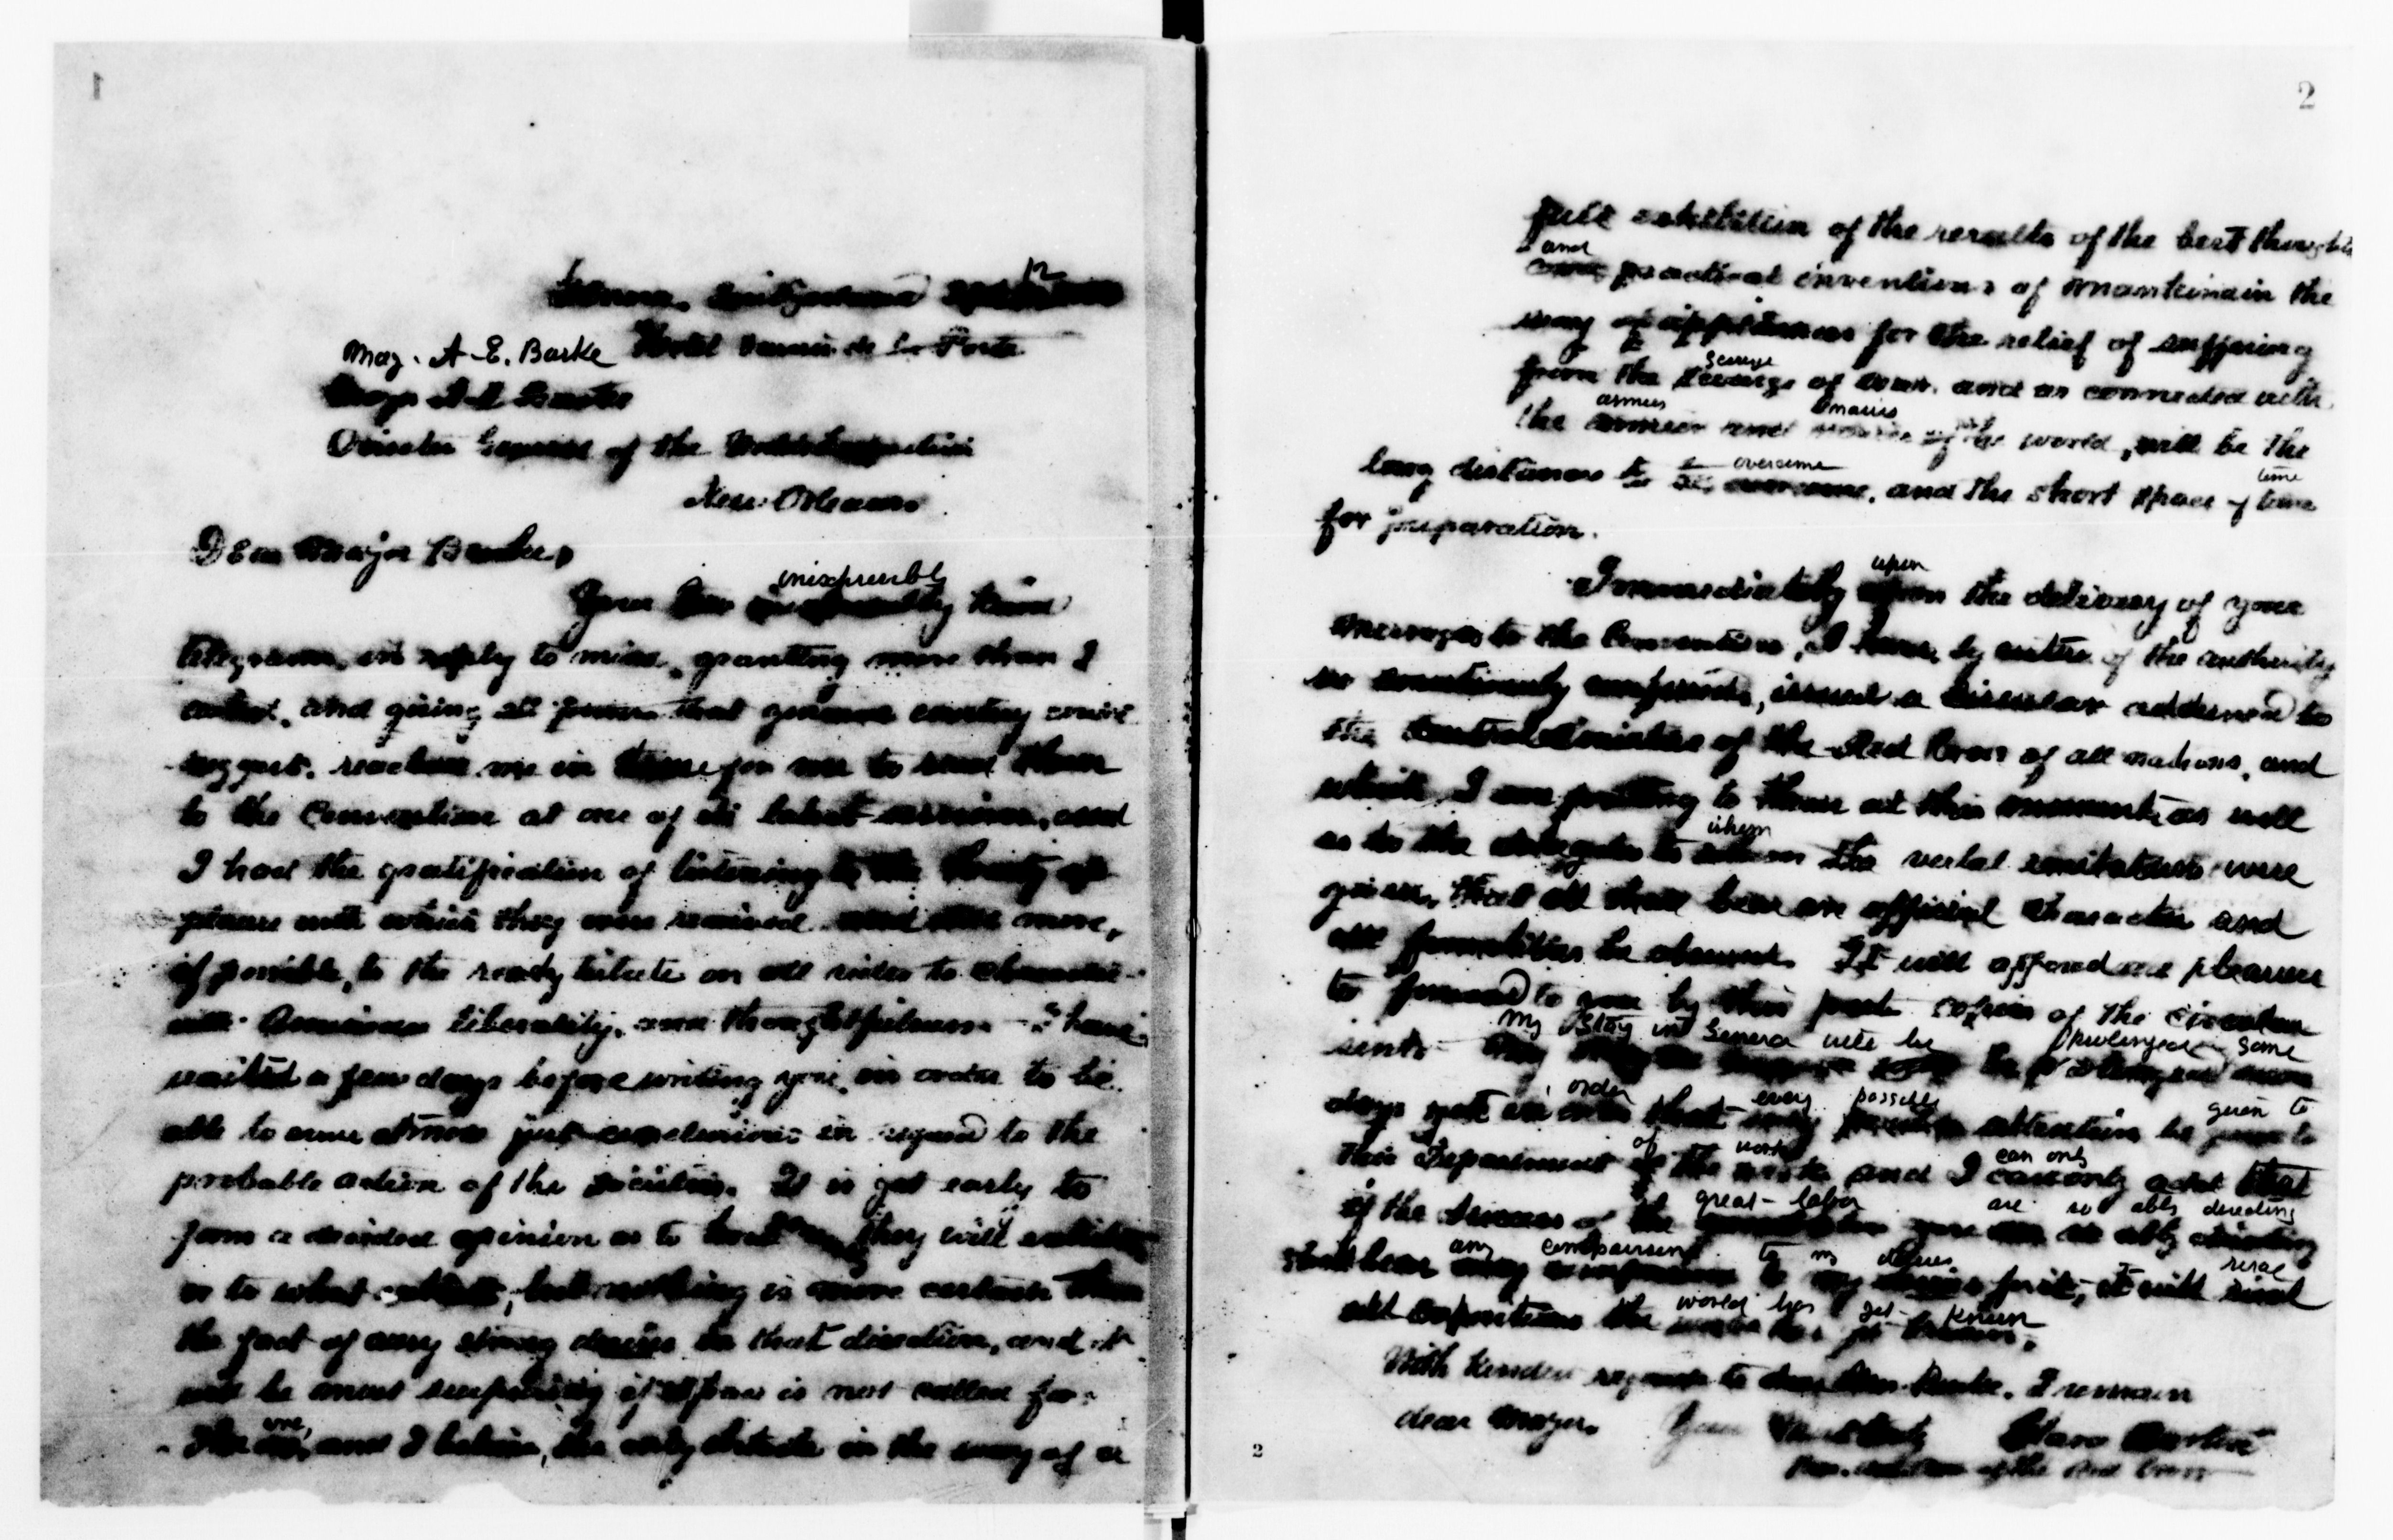 1
Geneva. Switzerland 12
Maj. A-E. Burke Hotel de la Poste
Major A E Burke
Director General of the World's Exposition
New Orleans
Dear Major Burke,
inexpressibly
Your kind
telegrams, in reply to mine, granting more than I
asked, and giving all power that genuine courtesy could
suggest, reached me in time for me to read them
to the Convention at one of its latest sessions, and
I had the gratification of listening to the hearty ap-
plause with which they were received and still more,
if possible, to the ready tribute on all sides to characteris-
tic American liberality, and thoughtfulness - I have
waited a few days before writing you, in order to be
able to arrive at more just conclusions in regard to the
probable action of the societies. It is yet early to
form a decided opinion as to they will exhibit
or to what extent, but nothing is more certain than
the fact of a very strong desire in that direction, and it
will be most surprising if space is not called for.
one
The one, and I believe, the only obstacle in the way of a
2
full exhibition of the results of the best thoughts
and
and practical inventions of mankind in the
way of appliances for the relief of suffering
scourge
from the scourge of war, and as connected with
armies navies
the armies and navies of the world, will be the
overcome time
long distances to be overcome, and the short space of time
for preparation.
upon
Immediately upon the delivery of your
messages to the Convention, I have, by virtue of the authority
so courteously conferred, issued a Circular addressed to
the Central Committees of the Red Cross of all nations, and
which I am posting to them at this moment, as well
whom
as to the delegates to whom the verbal invitations were
given, that all shall bear an official character and
all formalities be observed. It will afford me pleasure
to forward to you by this post copies of the circular
my stay in Geneva will be prolonged some
sent. My be prolonged some
order every possible given to
days yet in order that every possible attention be given to
of work can only
this Department of the work, and I can only add that
great labor are so ably directing
if the success of the you are so ably directing
any comparison to my desires rival
shall bear any comparison to my desires for it, it will rival
world has yet known
all Expositions the world has yet known.
With kindest regards to dear Mrs. Burke, I remain
dear Major. Your Clara Barton
2
of the Red Cross